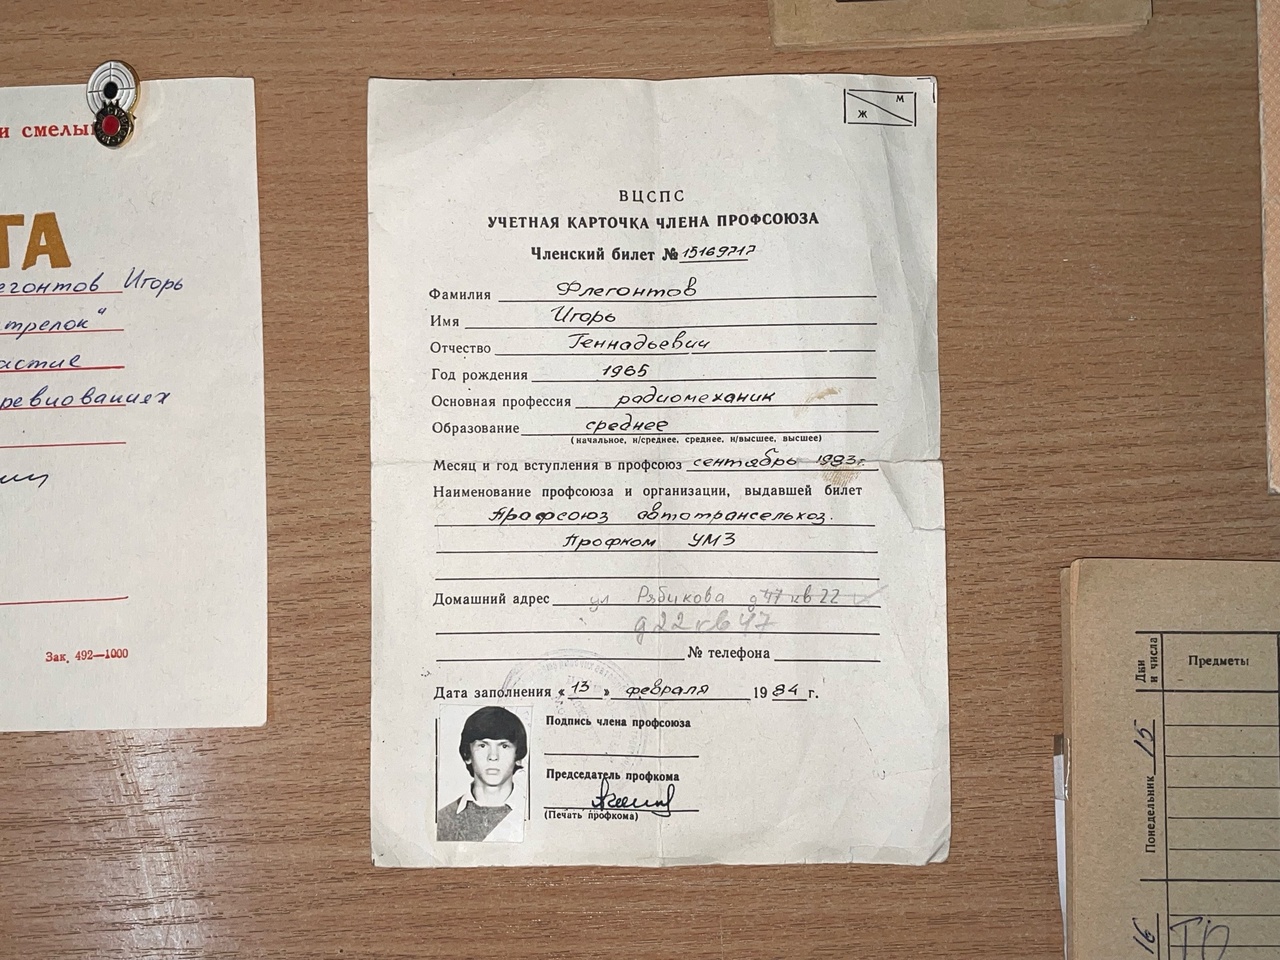 и смелы
ТА
легонтов Игорь
трелок"
астие
ревнованиях
Зак. 492—1000
М
Ж
ВЦСПС
УЧЕТНАЯ КАРТОЧКА ЧЛЕНА ПРОФСОЮЗА
Членский билет № 15169717
Фамилия Флегонтов
Имя Игорь
Отчество Геннадьевич
Год рождения 1965
Основная профессия радиомеханик
Образование среднее
(начальное, н/среднее, среднее, н/высшее, высшее)
Месяц и год вступления в профсоюз сентябрь 1983г.
Наименование профсоюза и организации, выдавшей билет
Профсоюз автотрансельхоз.
Профком УМЗ
Домашний адрес ул Рябикова д 47 кв 22
д 22 кв 47
№ телефона
Дата заполнения « 13 » февраля 19 84 г.
Подпись члена профсоюза
Председатель профкома
(Печать профкома)
Дни и числа
Предметы
Понедельник 15
16